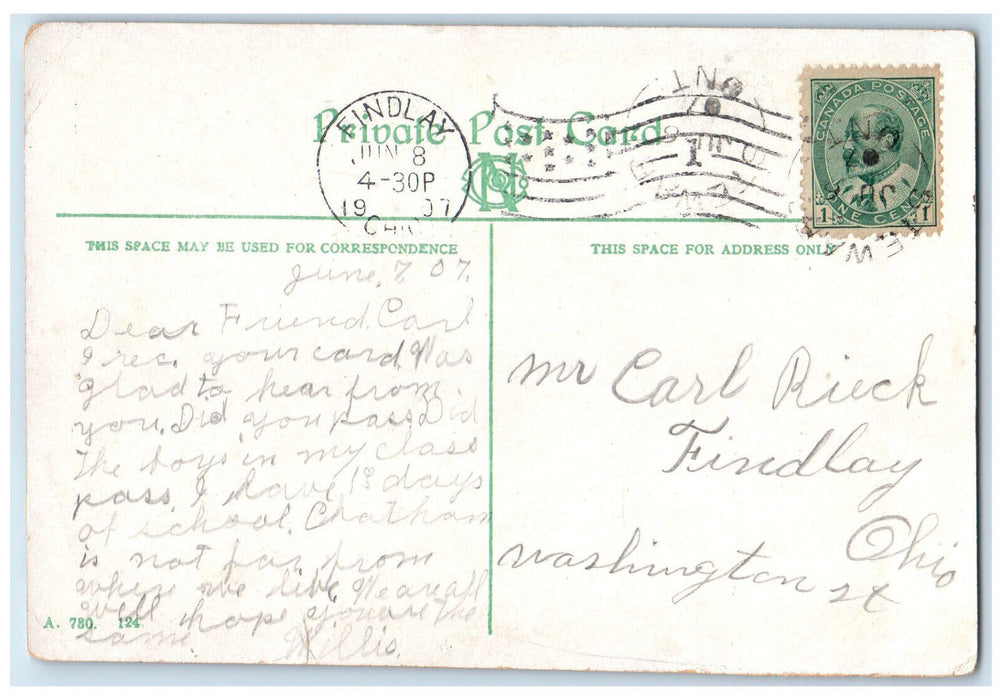 Private Post Card
FINDLAY
JUN 8
4-30P
19 07
1
CANADA POSTAGE
1 ONE CENT 1
THIS SPACE MAY BE USED FOR CORRESPONDENCE
THIS SPACE FOR ADDRESS ONLY
June, 7 07.
Dear Friend. Carl
I rec. your card. Was
glad to hear from
you. Did you pass. Did
the boys in my class
pass. I have days
of school. Chatham
is not far from
where we live. We are all
well hope you are the
same. Willis.
Mr Carl Rieck
Findlay
Ohio
Washington st
A. 780. 124